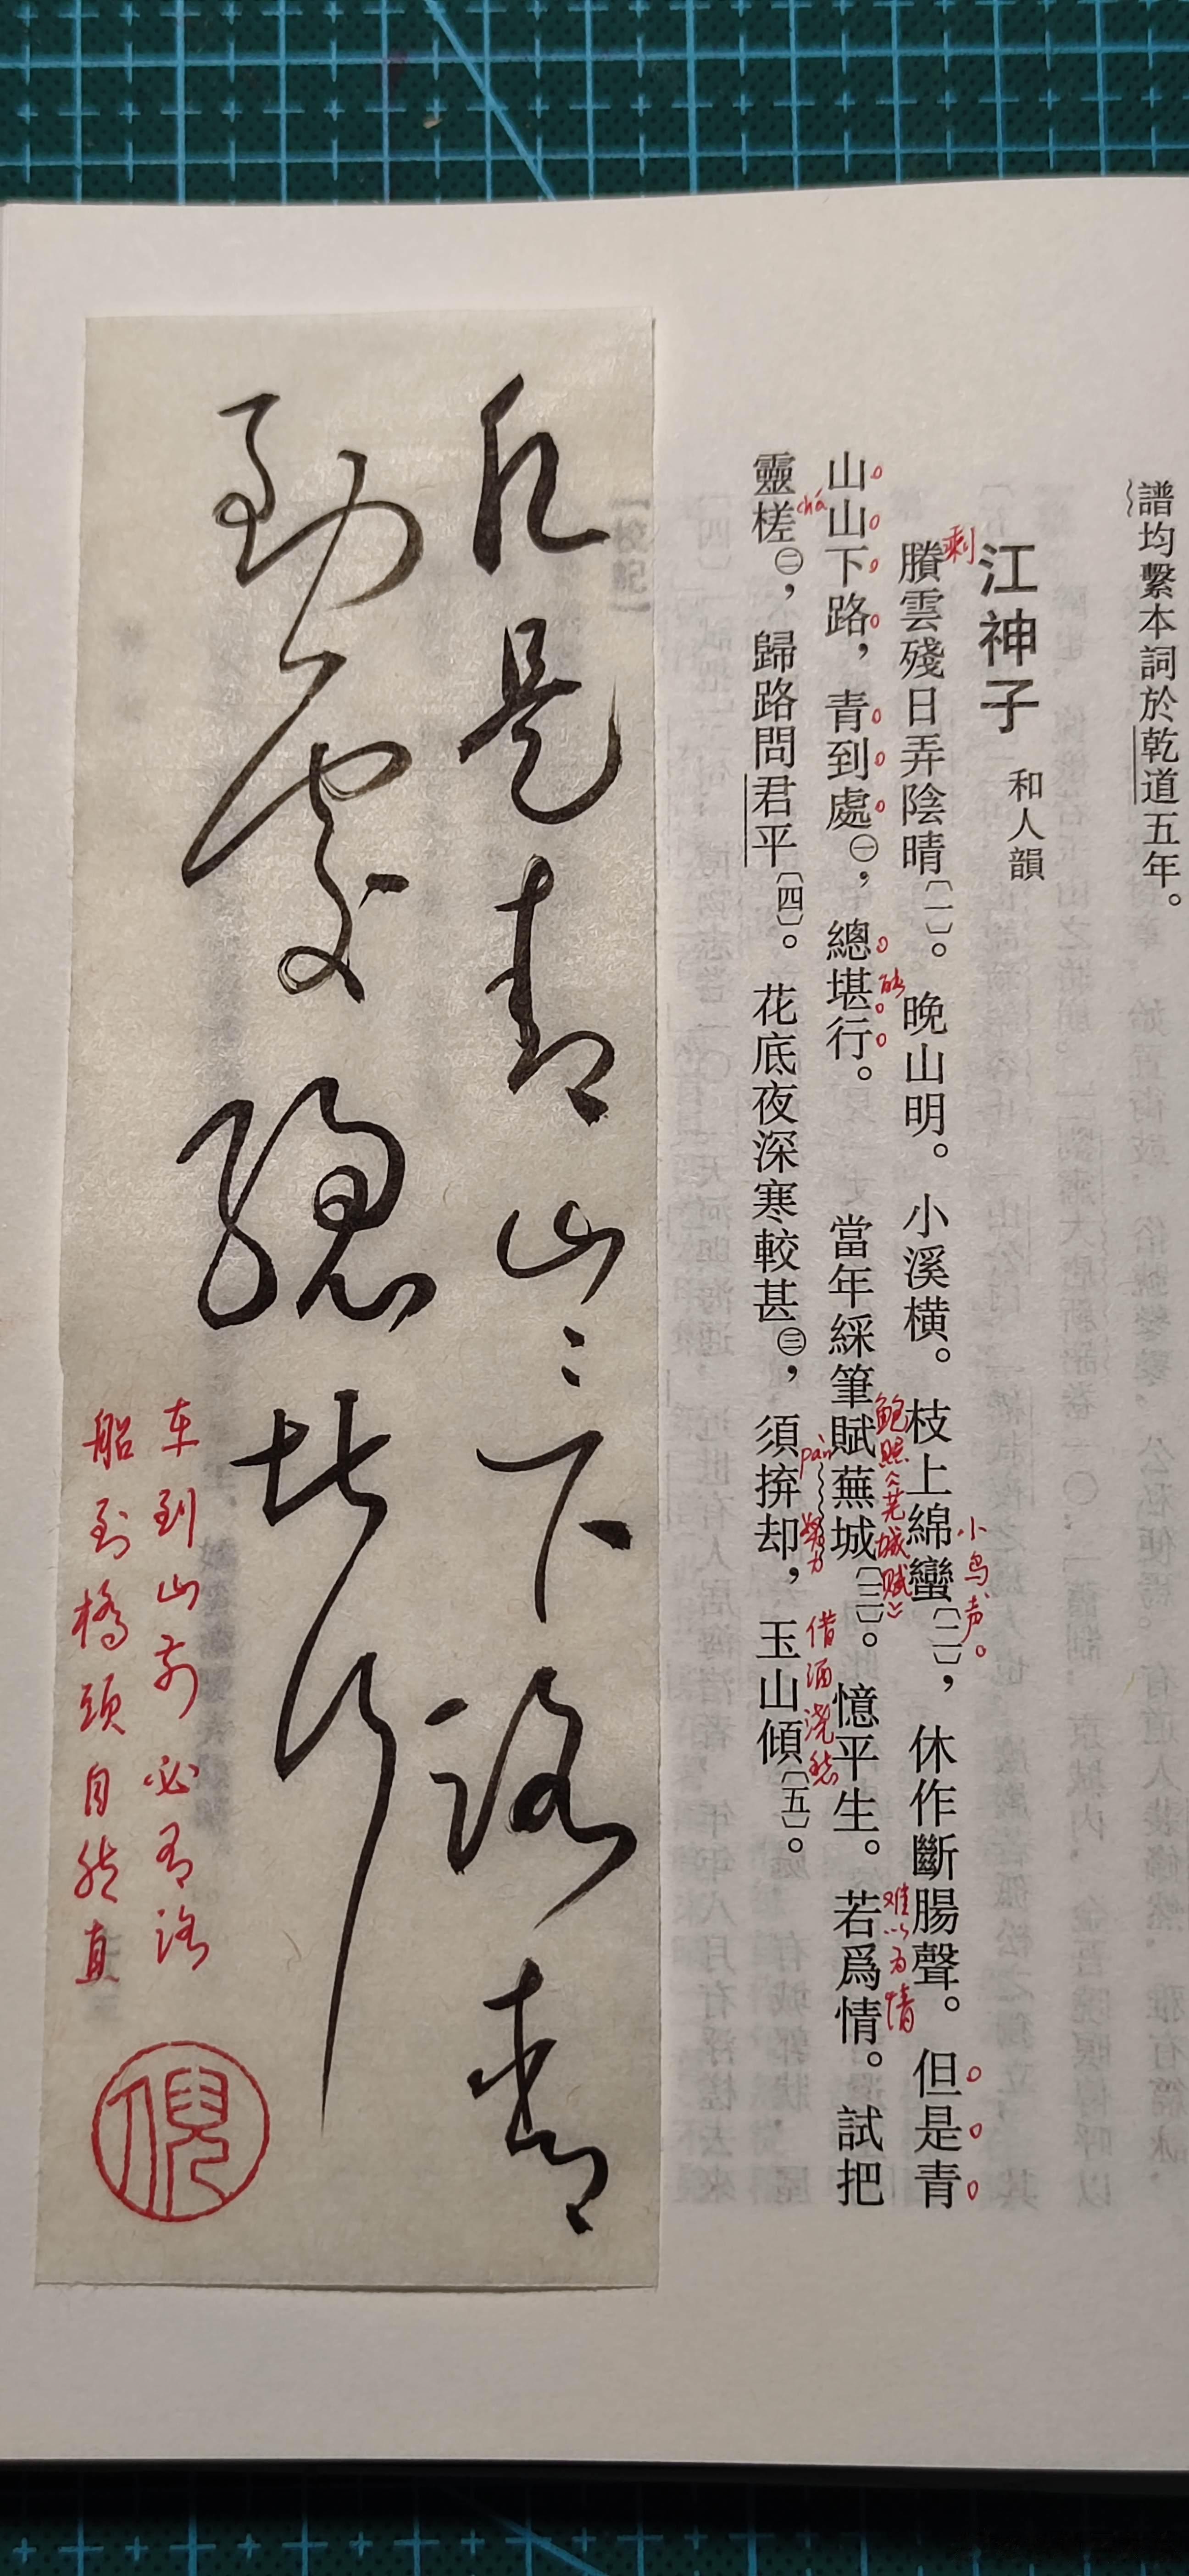 譜均繫本詞於乾道五年。
江神子 和人韻
賸雲殘日弄陰晴〔一〕。晚山明。小溪橫。枝上綿蠻〔二〕，休作斷腸聲。但是青
剩
小鳥声。
山山下路，青到處㊀，總堪行。 當年綵筆賦蕪城〔三〕。憶平生。若爲情。試把
能
鲍照《芜城赋》
难以为情
靈槎㊁，歸路問君平〔四〕。花底夜深寒較甚㊂，須拚却，玉山傾〔五〕。
chá
pàn
努力
借酒浇愁
但是青山山下路青
到處總堪行
车到山前必有路
船到橋頭自然直
倪